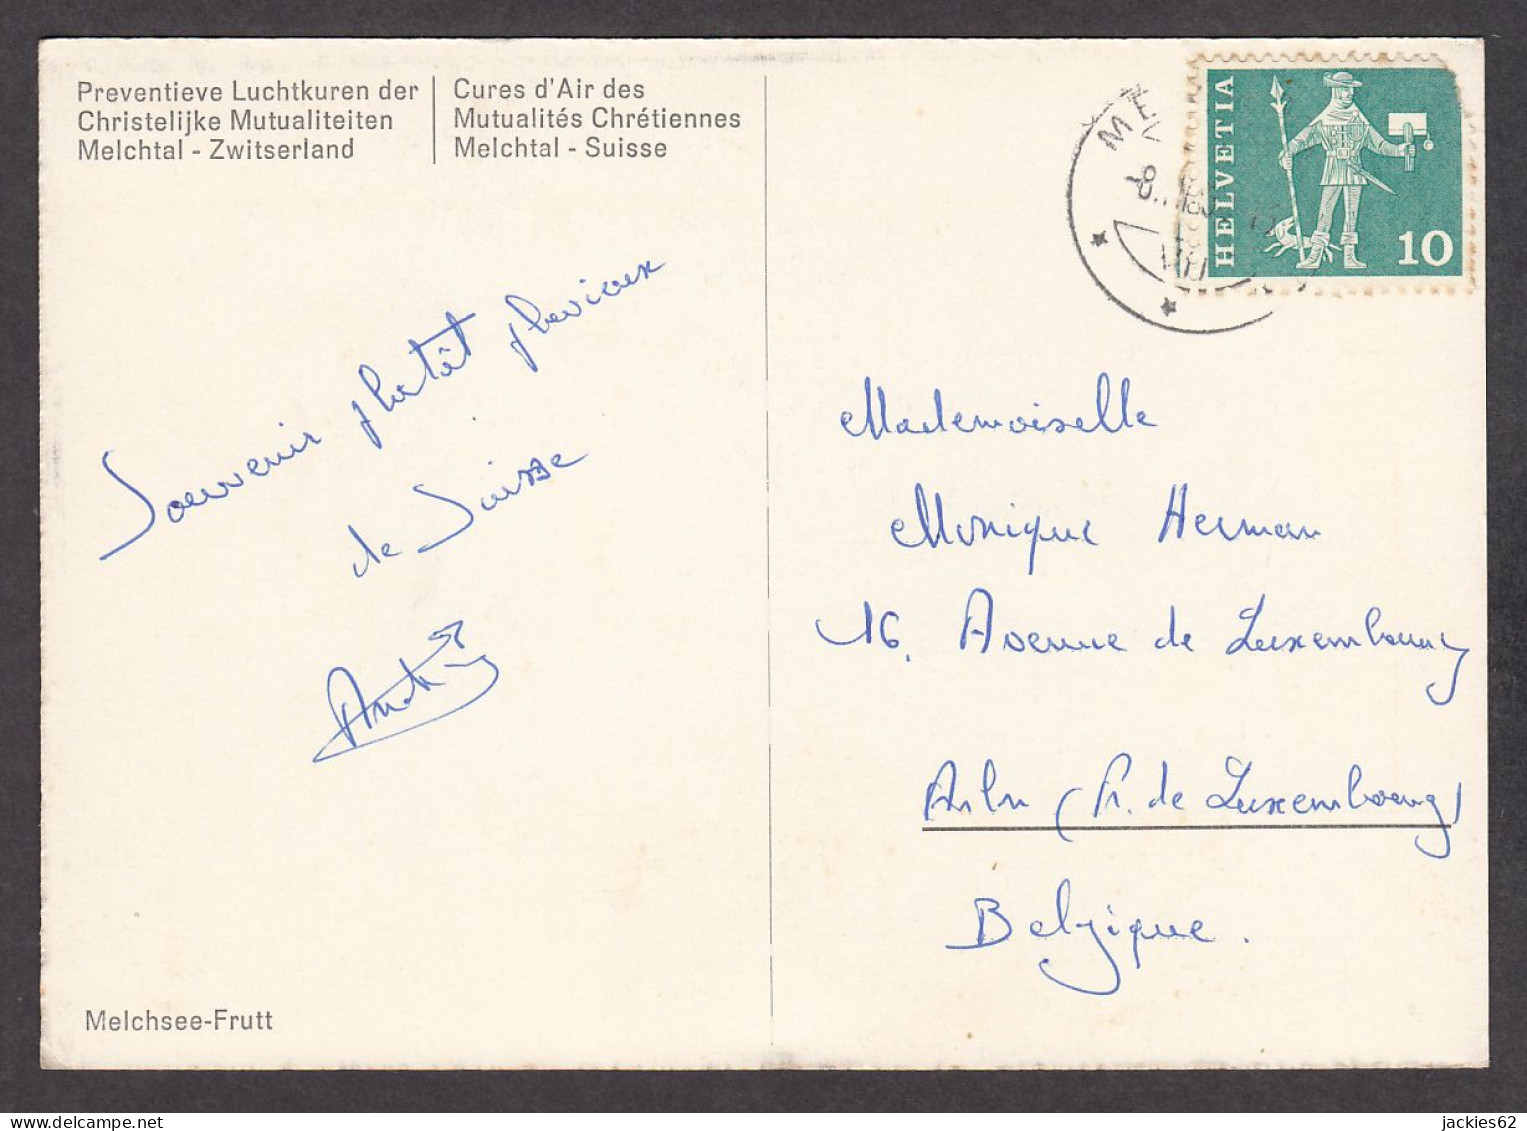 Preventieve Luchtkuren der
Christelijke Mutualiteiten
Melchtal - Zwitserland
Cures d'Air des
Mutualités Chrétiennes
Melchtal - Suisse
HELVETIA
10
Souvenir plutôt pluvieux
de Suisse
Mademoiselle
Monique Herman
16, Avenue de Luxembourg
Arlon (Pr. de Luxembourg)
Belgique.
Melchsee-Frutt
jackies62